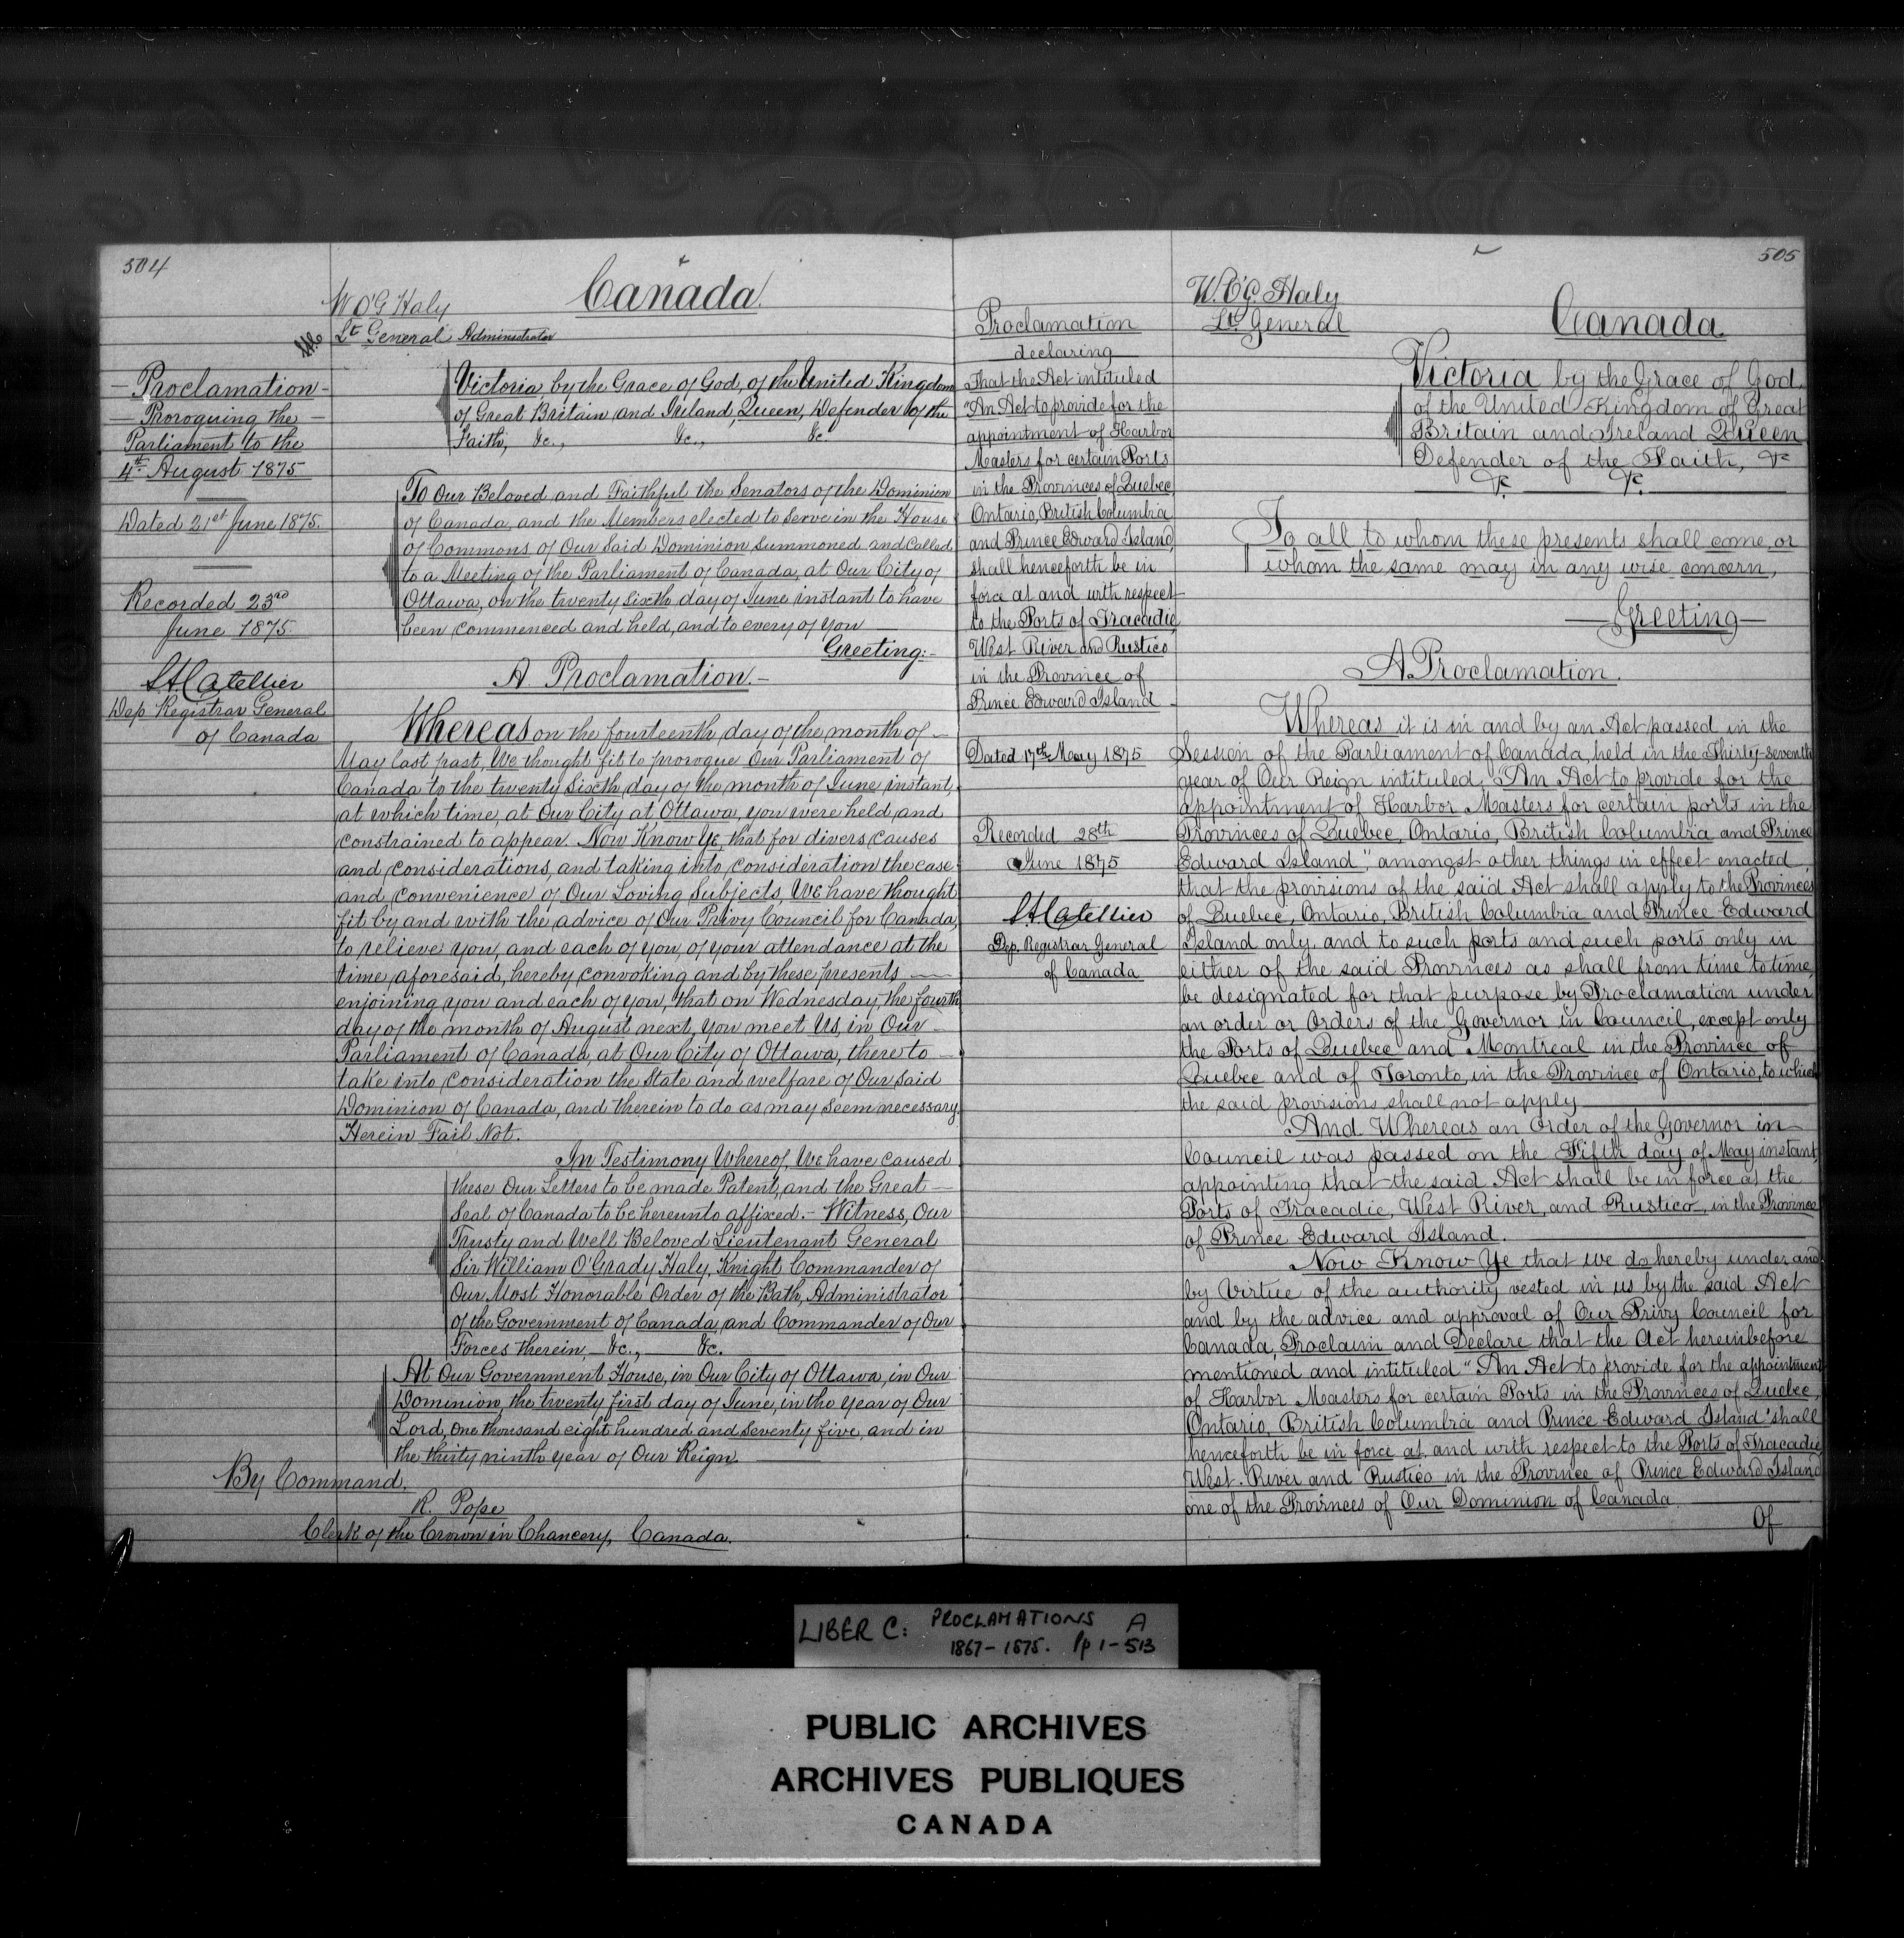 504
W O'G Haly
Lt General Administrator
Canada.
— Proclamation —
— Proroguing the —
Parliament to the
4th August 1875
Dated 21st June 1875.
Recorded 23rd
June 1875.
Dep Registrar General
of Canada
Victoria, by the Grace of God, of the United Kingdom
of Great Britain and Ireland, Queen, Defender of the
Faith, &c., &c., &c.
To Our Beloved and Faithful the Senators of the Dominion
of Canada, and the Members elected to serve in the House
of Commons of Our Said Dominion summoned and Called
to a Meeting of the Parliament of Canada, at Our City of
Ottawa, on the twenty sixth day of June instant to have
been commenced and held, and to every of you
Greeting:-
A Proclamation.-
Whereas on the fourteenth day of the month of
May last past, We thought fit to prorogue Our Parliament of
Canada to the twenty Sixth day of the month of June instant,
at which time, at Our City at Ottawa, you were held and
constrained to appear. Now Know Ye, that for divers causes
and considerations, and taking into consideration the ease
and convenience of Our Loving Subjects, We have thought
fit by and with the advice of Our Privy Council for Canada,
to relieve you, and each of you, of your attendance at the
time aforesaid, hereby convoking and by these presents
enjoining you and each of you, that on Wednesday, the fourth
day of the month of August next, you meet Us, in Our
Parliament of Canada, at Our City of Ottawa, there to
take into consideration the State and welfare of Our Said
Dominion of Canada, and therein to do as may seem necessary.
Herein Fail Not.
In Testimony Whereof, We have caused
these Our Letters to be made Patent, and the Great
Seal of Canada to be hereunto affixed.- Witness, Our
Trusty and Well Beloved Lieutenant General
Sir William O'Grady Haly, Knight Commander of
Our Most Honorable Order of the Bath, Administrator
of the Government of Canada, and Commander of Our
Forces therein, &c., &c.
At Our Government House, in Our City of Ottawa, in Our
Dominion, the twenty first day of June, in the year of Our
Lord, one thousand eight hundred and seventy five, and in
the thirty ninth year of Our Reign.
By Command,
R. Pope
Clerk of the Crown in Chancery, Canada.
505
W. O'G. Haly
Lt. General
Canada.
Proclamation
declaring
That the Act intituled
"An Act to provide for the
appointment of Harbor
Masters for certain Ports
in the Provinces of Quebec,
Ontario, British Columbia
and Prince Edward Island,
shall henceforth be in
force at and with respect
to the Ports of Tracadie,
West River and Rustico
in the Province of
Prince Edward Island
Dated 17th May 1875
Recorded 28th
June 1875
Dep. Registrar General
of Canada
Victoria by the Grace of God,
of the United Kingdom of Great
Britain and Ireland Queen
Defender of the Faith, &c
&c &c
To all to whom these presents shall come or
whom the same may in any wise concern,
— Greeting —
A Proclamation.
Whereas it is in and by an Act passed in the
Session of the Parliament of Canada, held in the Thirty-seventh
year of Our Reign intituled, "An Act to provide for the
appointment of Harbor Masters for certain ports in the
Provinces of Quebec, Ontario, British Columbia and Prince
Edward Island" amongst other things in effect enacted
that the provisions of the said Act shall apply to the Provinces
of Quebec, Ontario, British Columbia and Prince Edward
Island only, and to such ports and such ports only in
either of the said Provinces as shall from time to time,
be designated for that purpose by Proclamation under
an order or Orders of the Governor in Council, except only
the Ports of Quebec and Montreal in the Province of
Quebec and of Toronto, in the Province of Ontario, to which
the said provisions shall not apply
And Whereas an Order of the Governor in
Council was passed on the Fifth day of May instant,
appointing that the said Act shall be in force at the
Ports of Tracadie, West River, and Rustico, in the Province
of Prince Edward Island.
Now Know Ye that we do hereby under and
by Virtue of the authority vested in us by the said Act
and by the advice and approval of Our Privy Council for
Canada, Proclaim and Declare that the Act hereinbefore
mentioned and intituled "An Act to provide for the appointment
of Harbor Masters for certain Ports in the Provinces of Quebec,
Ontario, British Columbia and Prince Edward Island" shall
henceforth be in force at, and with respect to the Ports of Tracadie,
West River and Rustico in the Province of Prince Edward Island
one of the Provinces of Our Dominion of Canada.
Of
LIBER C: PROCLAMATIONS A
1867-1875. pp 1-513
PUBLIC ARCHIVES
ARCHIVES PUBLIQUES
CANADA